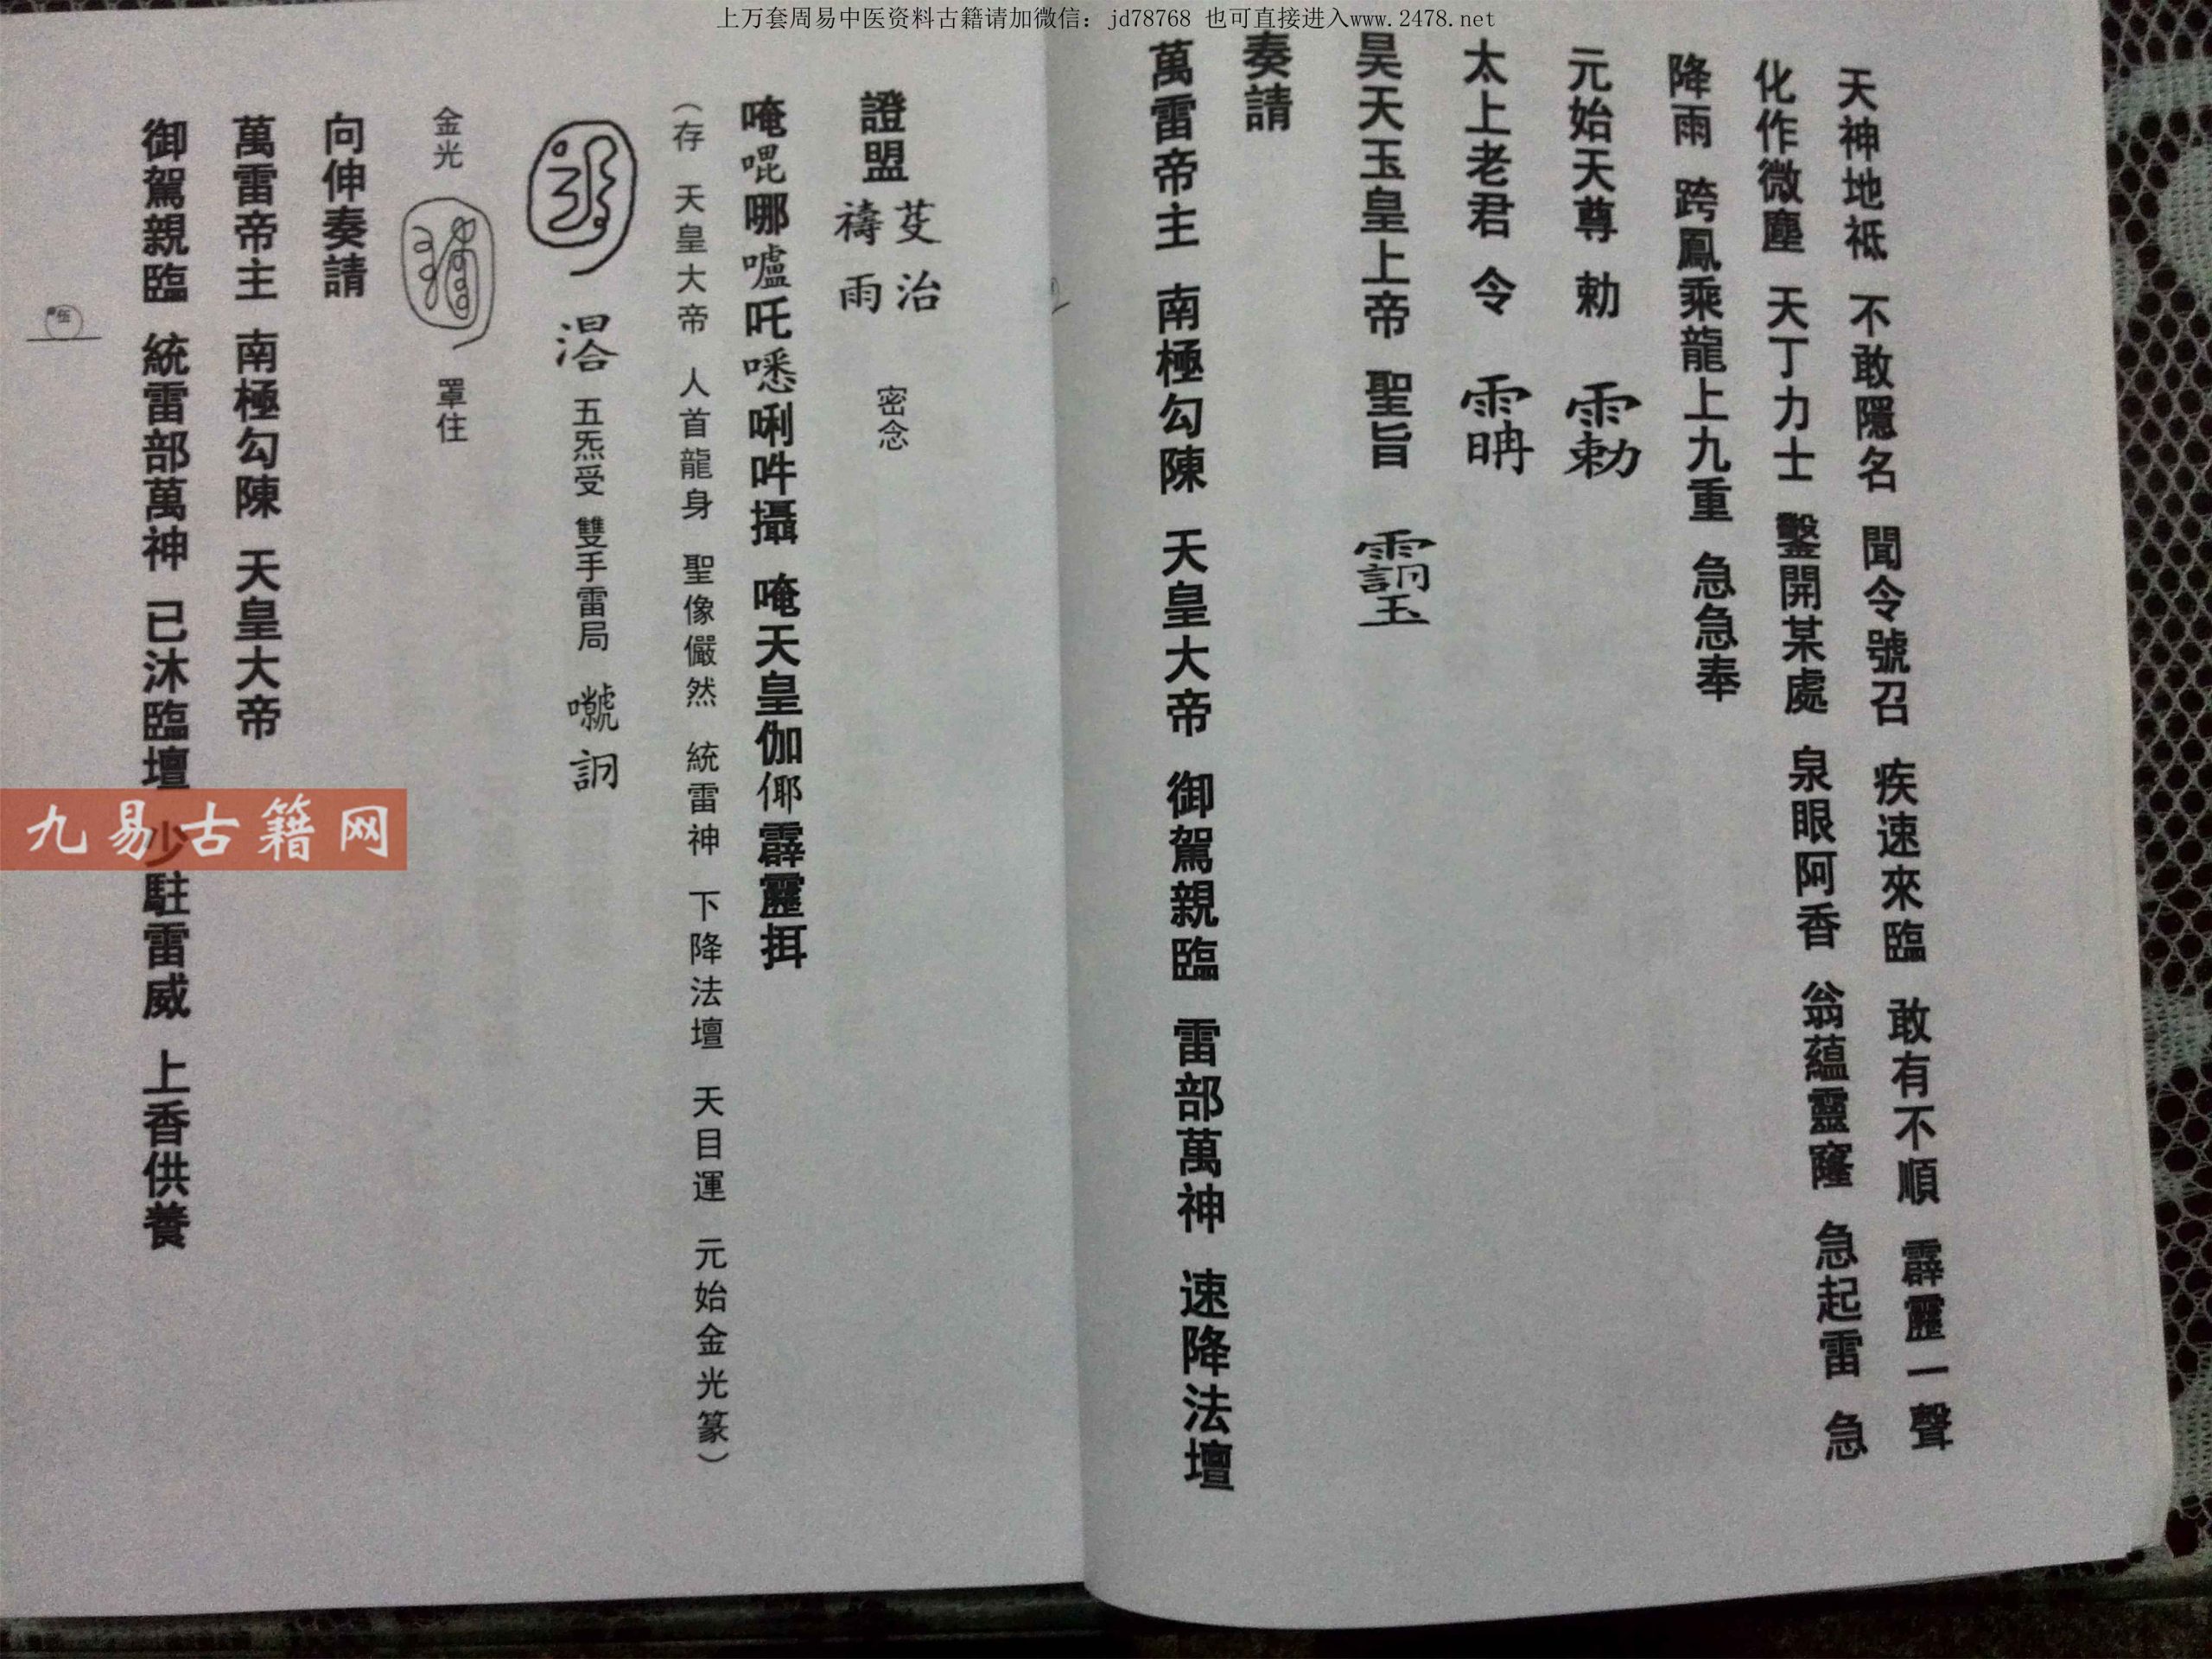 上万套周易中医资料古籍请加微信：jd78768 也可直接进入www.2478.net
天神地祗 不敢隱名 聞令號召 疾速來臨 敢有不順 霹靂一聲
化作微塵 天丁力士 鑿開某處 泉眼阿香 翁蘊靈窿 急起雷 急
降雨 跨鳳乘龍上九重 急急奉
元始天尊 勅
太上老君 令
昊天玉皇上帝 聖旨
奏請
萬雷帝主 南極勾陳 天皇大帝 御駕親臨 雷部萬神 速降法壇
證盟 芟治
禱雨 密念
唵 哪嚧吒 唎吽攝 唵天皇伽倻霹靂挕
（存 天皇大帝 人首龍身 聖像儼然 統雷神 下降法壇 天目運 元始金光篆）
五炁受 雙手雷局
金光 罩住
向伸奏請
萬雷帝主 南極勾陳 天皇大帝
御駕親臨 統雷部萬神 已沐臨壇 少駐雷威 上香供養
伍
九易古籍网